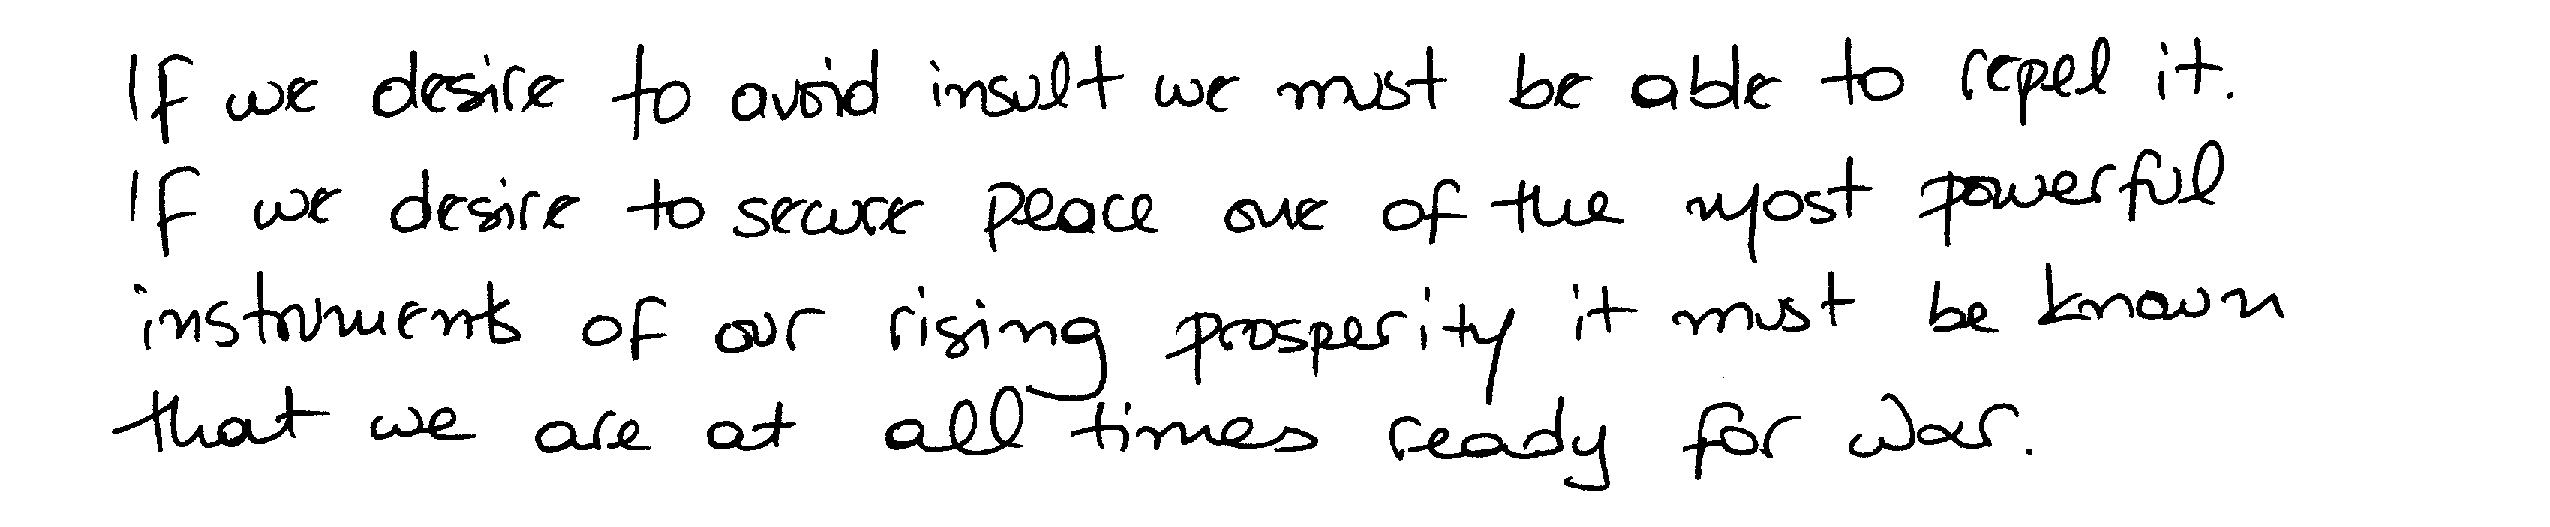 If we desire to avoid insult we must be able to repel it.
If we desire to secure peace one of the most powerful
instruments of our rising prosperity it must be known
that we are at all times ready for war.